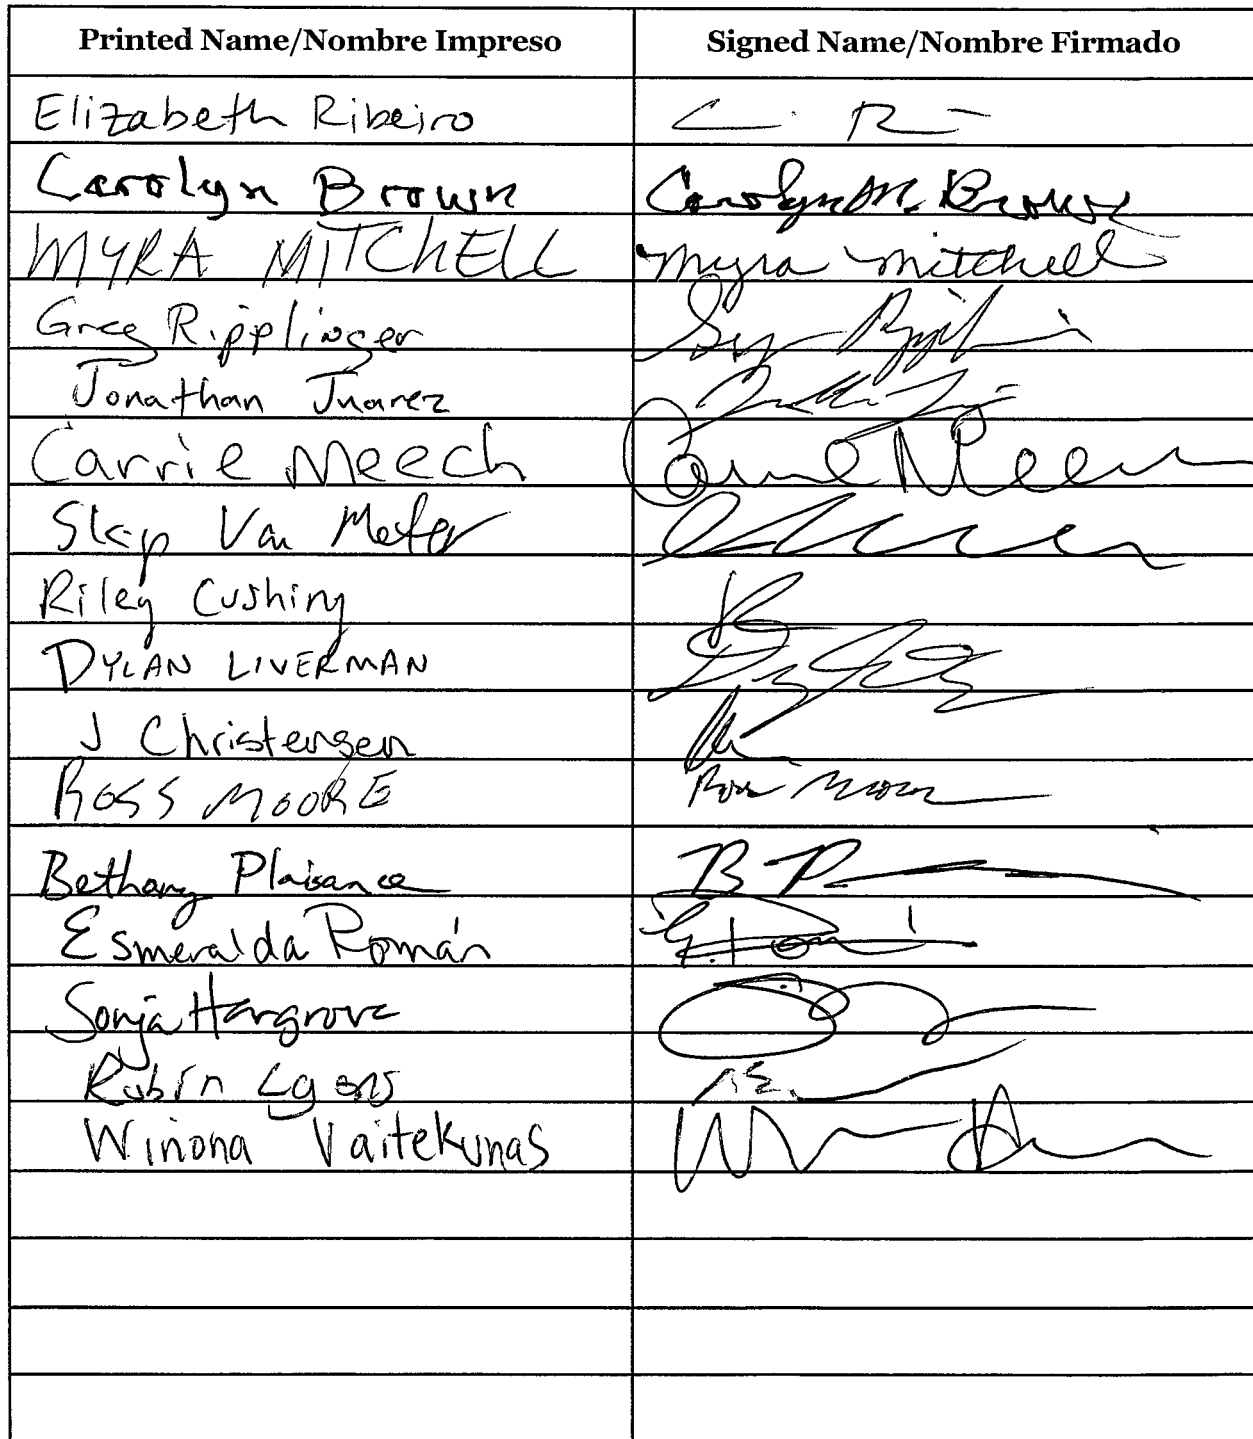 Printed Name/Nombre Impreso Signed Name/Nombre Firmado
Elizabeth Ribeiro
Carolyn Brown Carolyn M. Brown
MYRA MITChELL Myra Mitchell
Greg Ripplinger
Jonathan Juarez
Carrie Meech Carrie Meech
Skip Van Meter
Riley Cushing
DYLAN LIVERMAN
J Christensen
ROSS MOORE Ross Moore
Bethany Plaisance B P
Esmeralda Román
Sonja Hargrove
Robin Lyons
Winona Vaitekunas